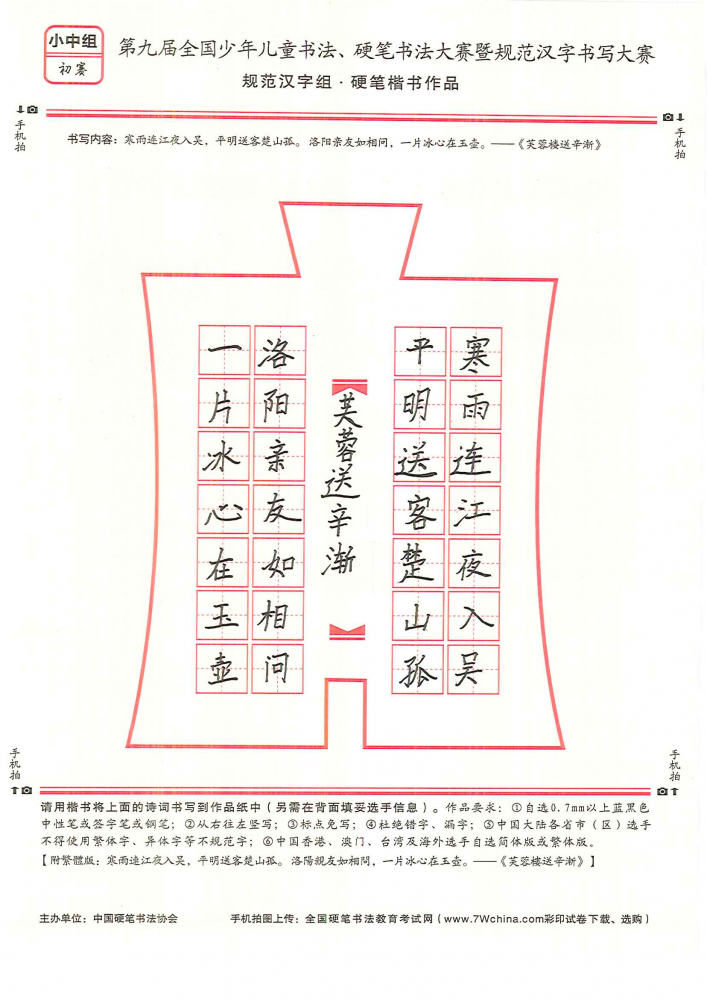 小中组
初赛
第九届全国少年儿童书法、硬笔书法大赛暨规范汉字书写大赛
规范汉字组·硬笔楷书作品
手机拍
手机拍
书写内容：寒雨连江夜入吴，平明送客楚山孤。洛阳亲友如相问，一片冰心在玉壶。——《芙蓉楼送辛渐》
寒雨连江夜入吴
平明送客楚山孤
芙蓉送辛渐
洛阳亲友如相问
一片冰心在玉壶
手机拍
手机拍
请用楷书将上面的诗词书写到作品纸中（另需在背面填妥选手信息）。作品要求：①自选0.7mm以上蓝黑色
中性笔或签字笔或钢笔；②从右往左竖写；③标点免写；④杜绝错字、漏字；⑤中国大陆各省市（区）选手
不得使用繁体字、异体字等不规范字；⑥中国香港、澳门、台湾及海外选手自选简体版或繁体版。
【附繁體版：寒雨連江夜入吳，平明送客楚山孤。洛陽親友如相問，一片冰心在玉壺。——《芙蓉樓送辛漸》】
主办单位：中国硬笔书法协会
手机拍图上传：全国硬笔书法教育考试网（www.7Wchina.com彩印试卷下载、选购）